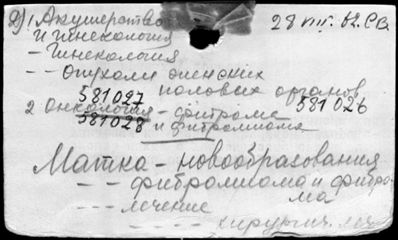 2) 1 Акушерство 28 VIII. 62. СВ
и гинекология
- Гинекология
- - Опухоли женских
половых органов
581027 581026
2 Онкология - фиброма
581028 и фибромиома
Матка - новообразования
- - фибромиома и фибро
ма
- - лечение
- - - - хирургич.